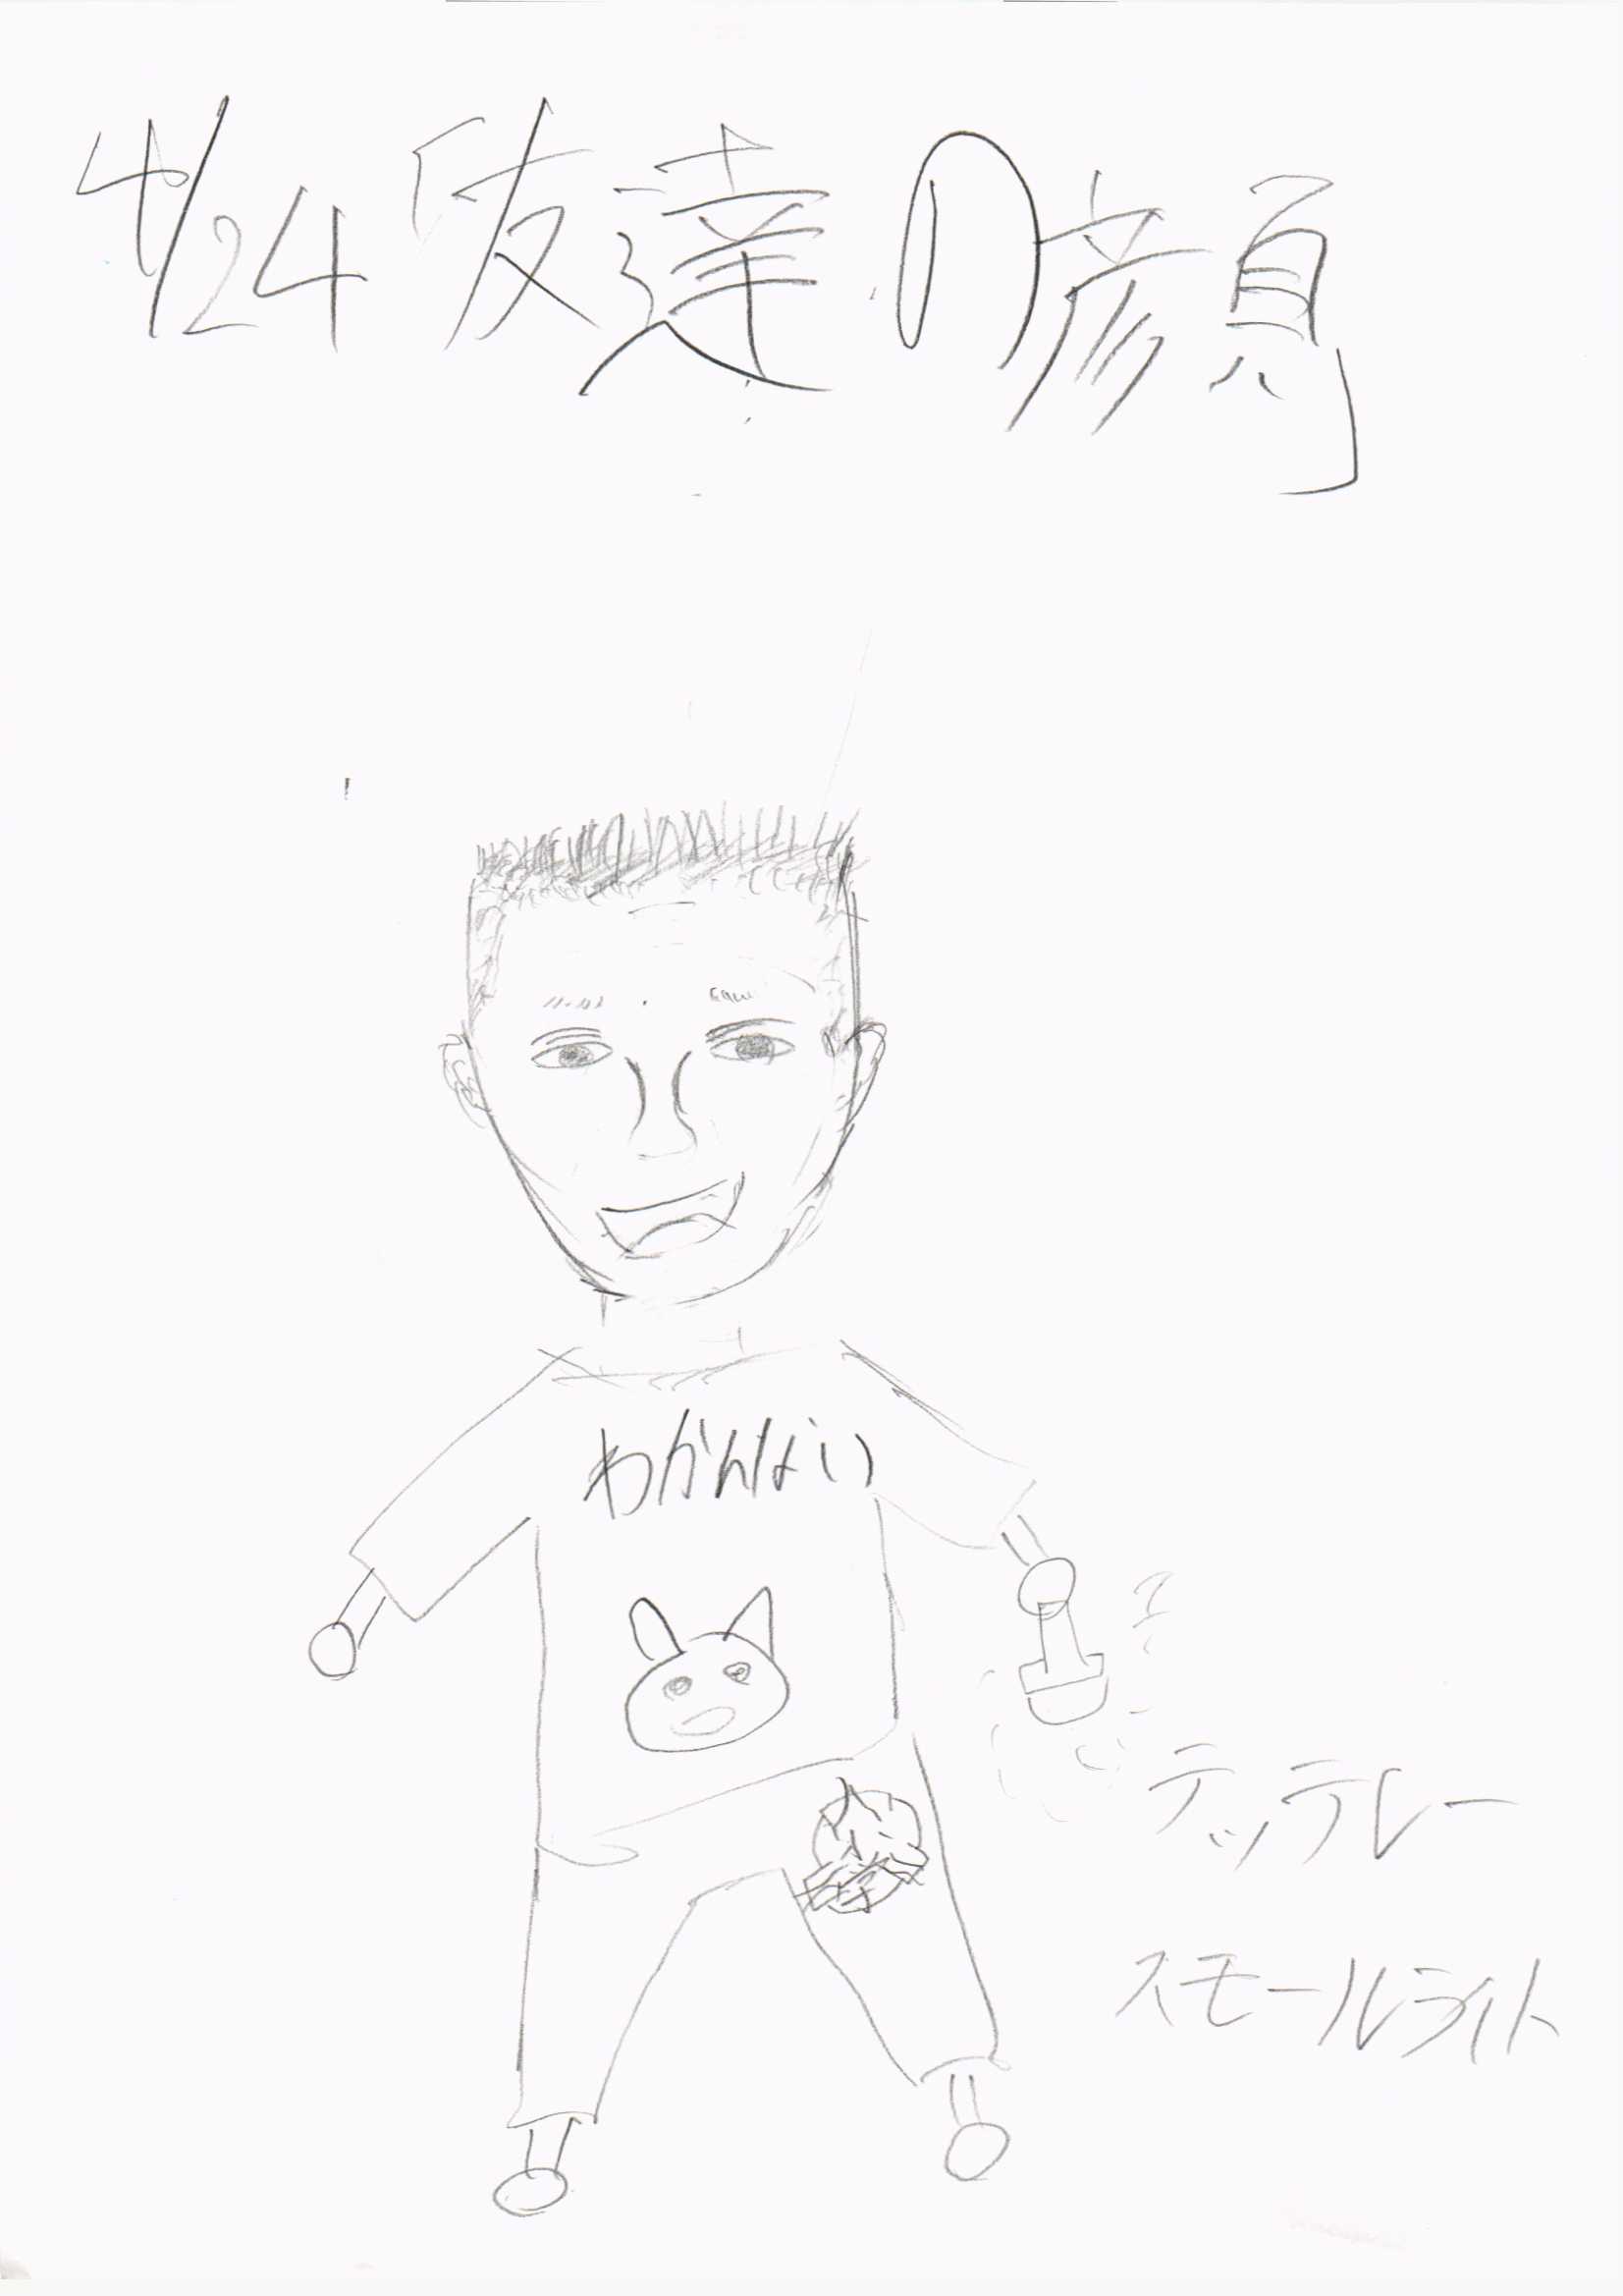 4/24「友達の顔」
わかんない
テッテレー
スモールライト